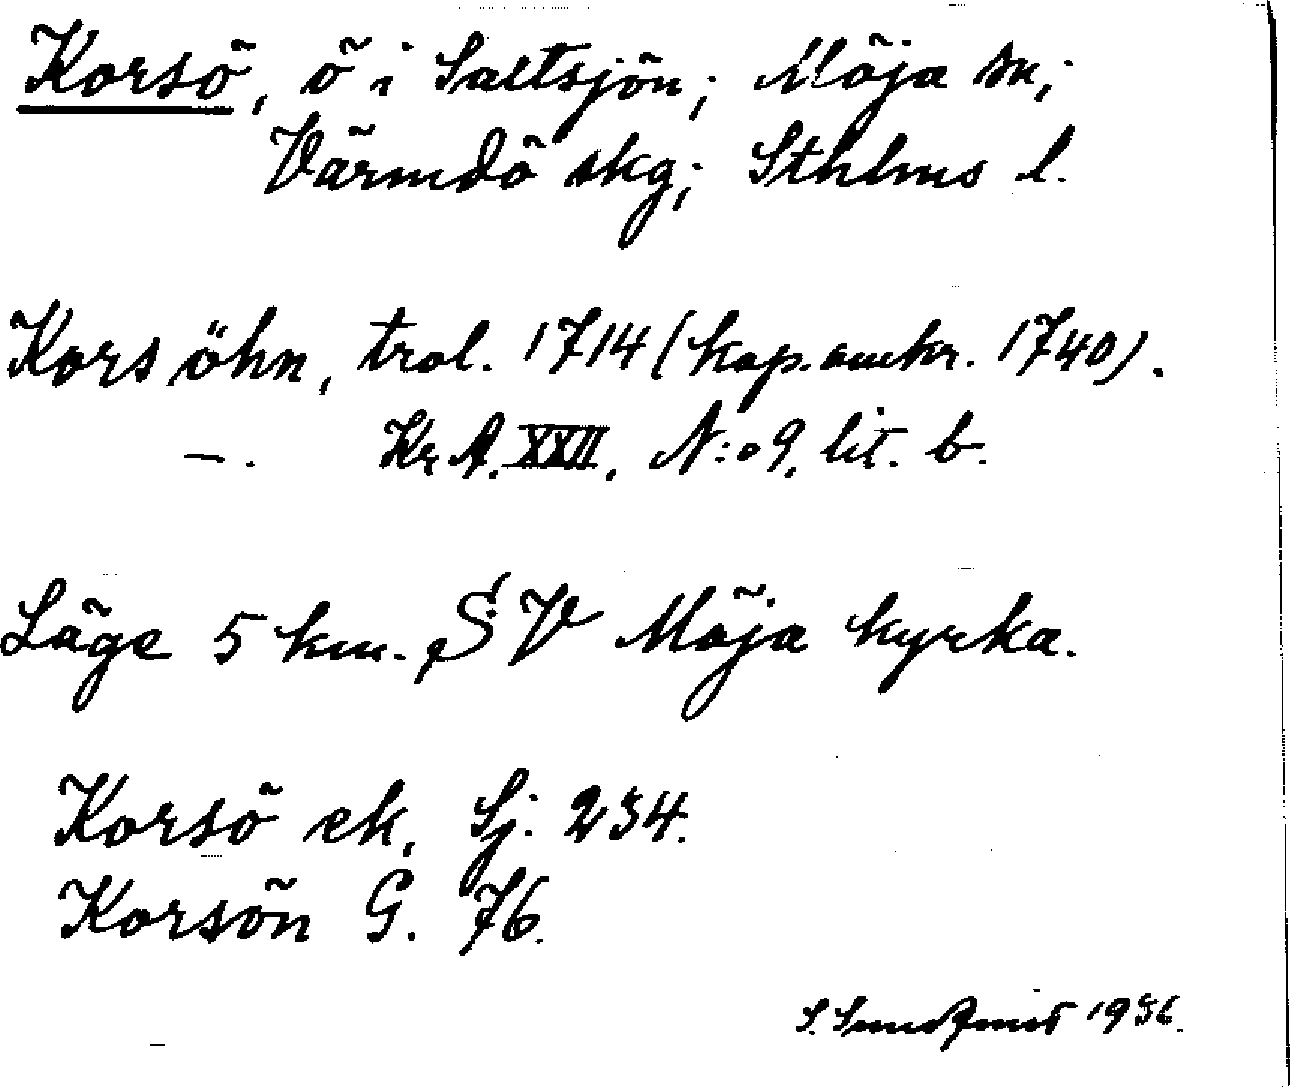 Korsö, ö i Saltsjön; Möja sn;
Värmdö skg; Sthlms l.
Kors öhn, trol. 1714 (kop. omkr. 1740).
—. Kr A. XXII. N:o 9. lit. b.
Läge 5 km. SV Möja kyrka.
Korsö ek. Sj. 234.
Korsön G. 76.
S. Sundqvist 1936.